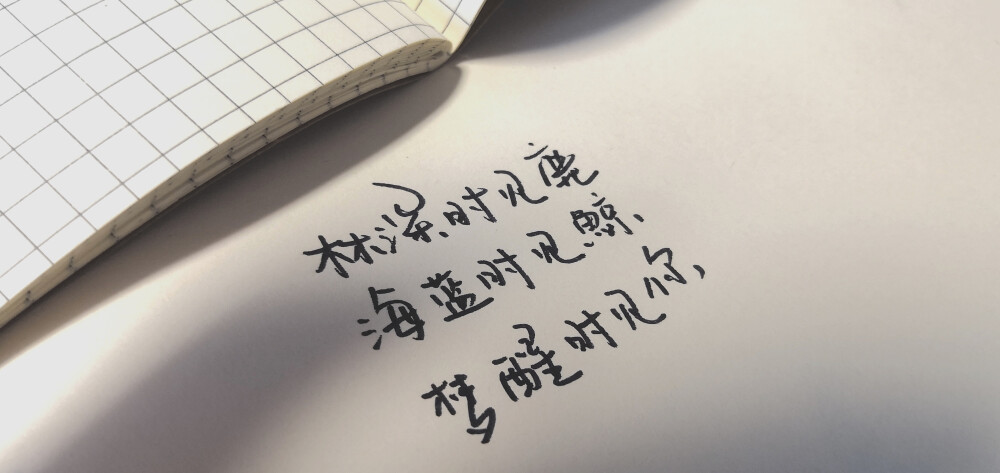 林深时见鹿
海蓝时见鲸、
梦醒时见你、